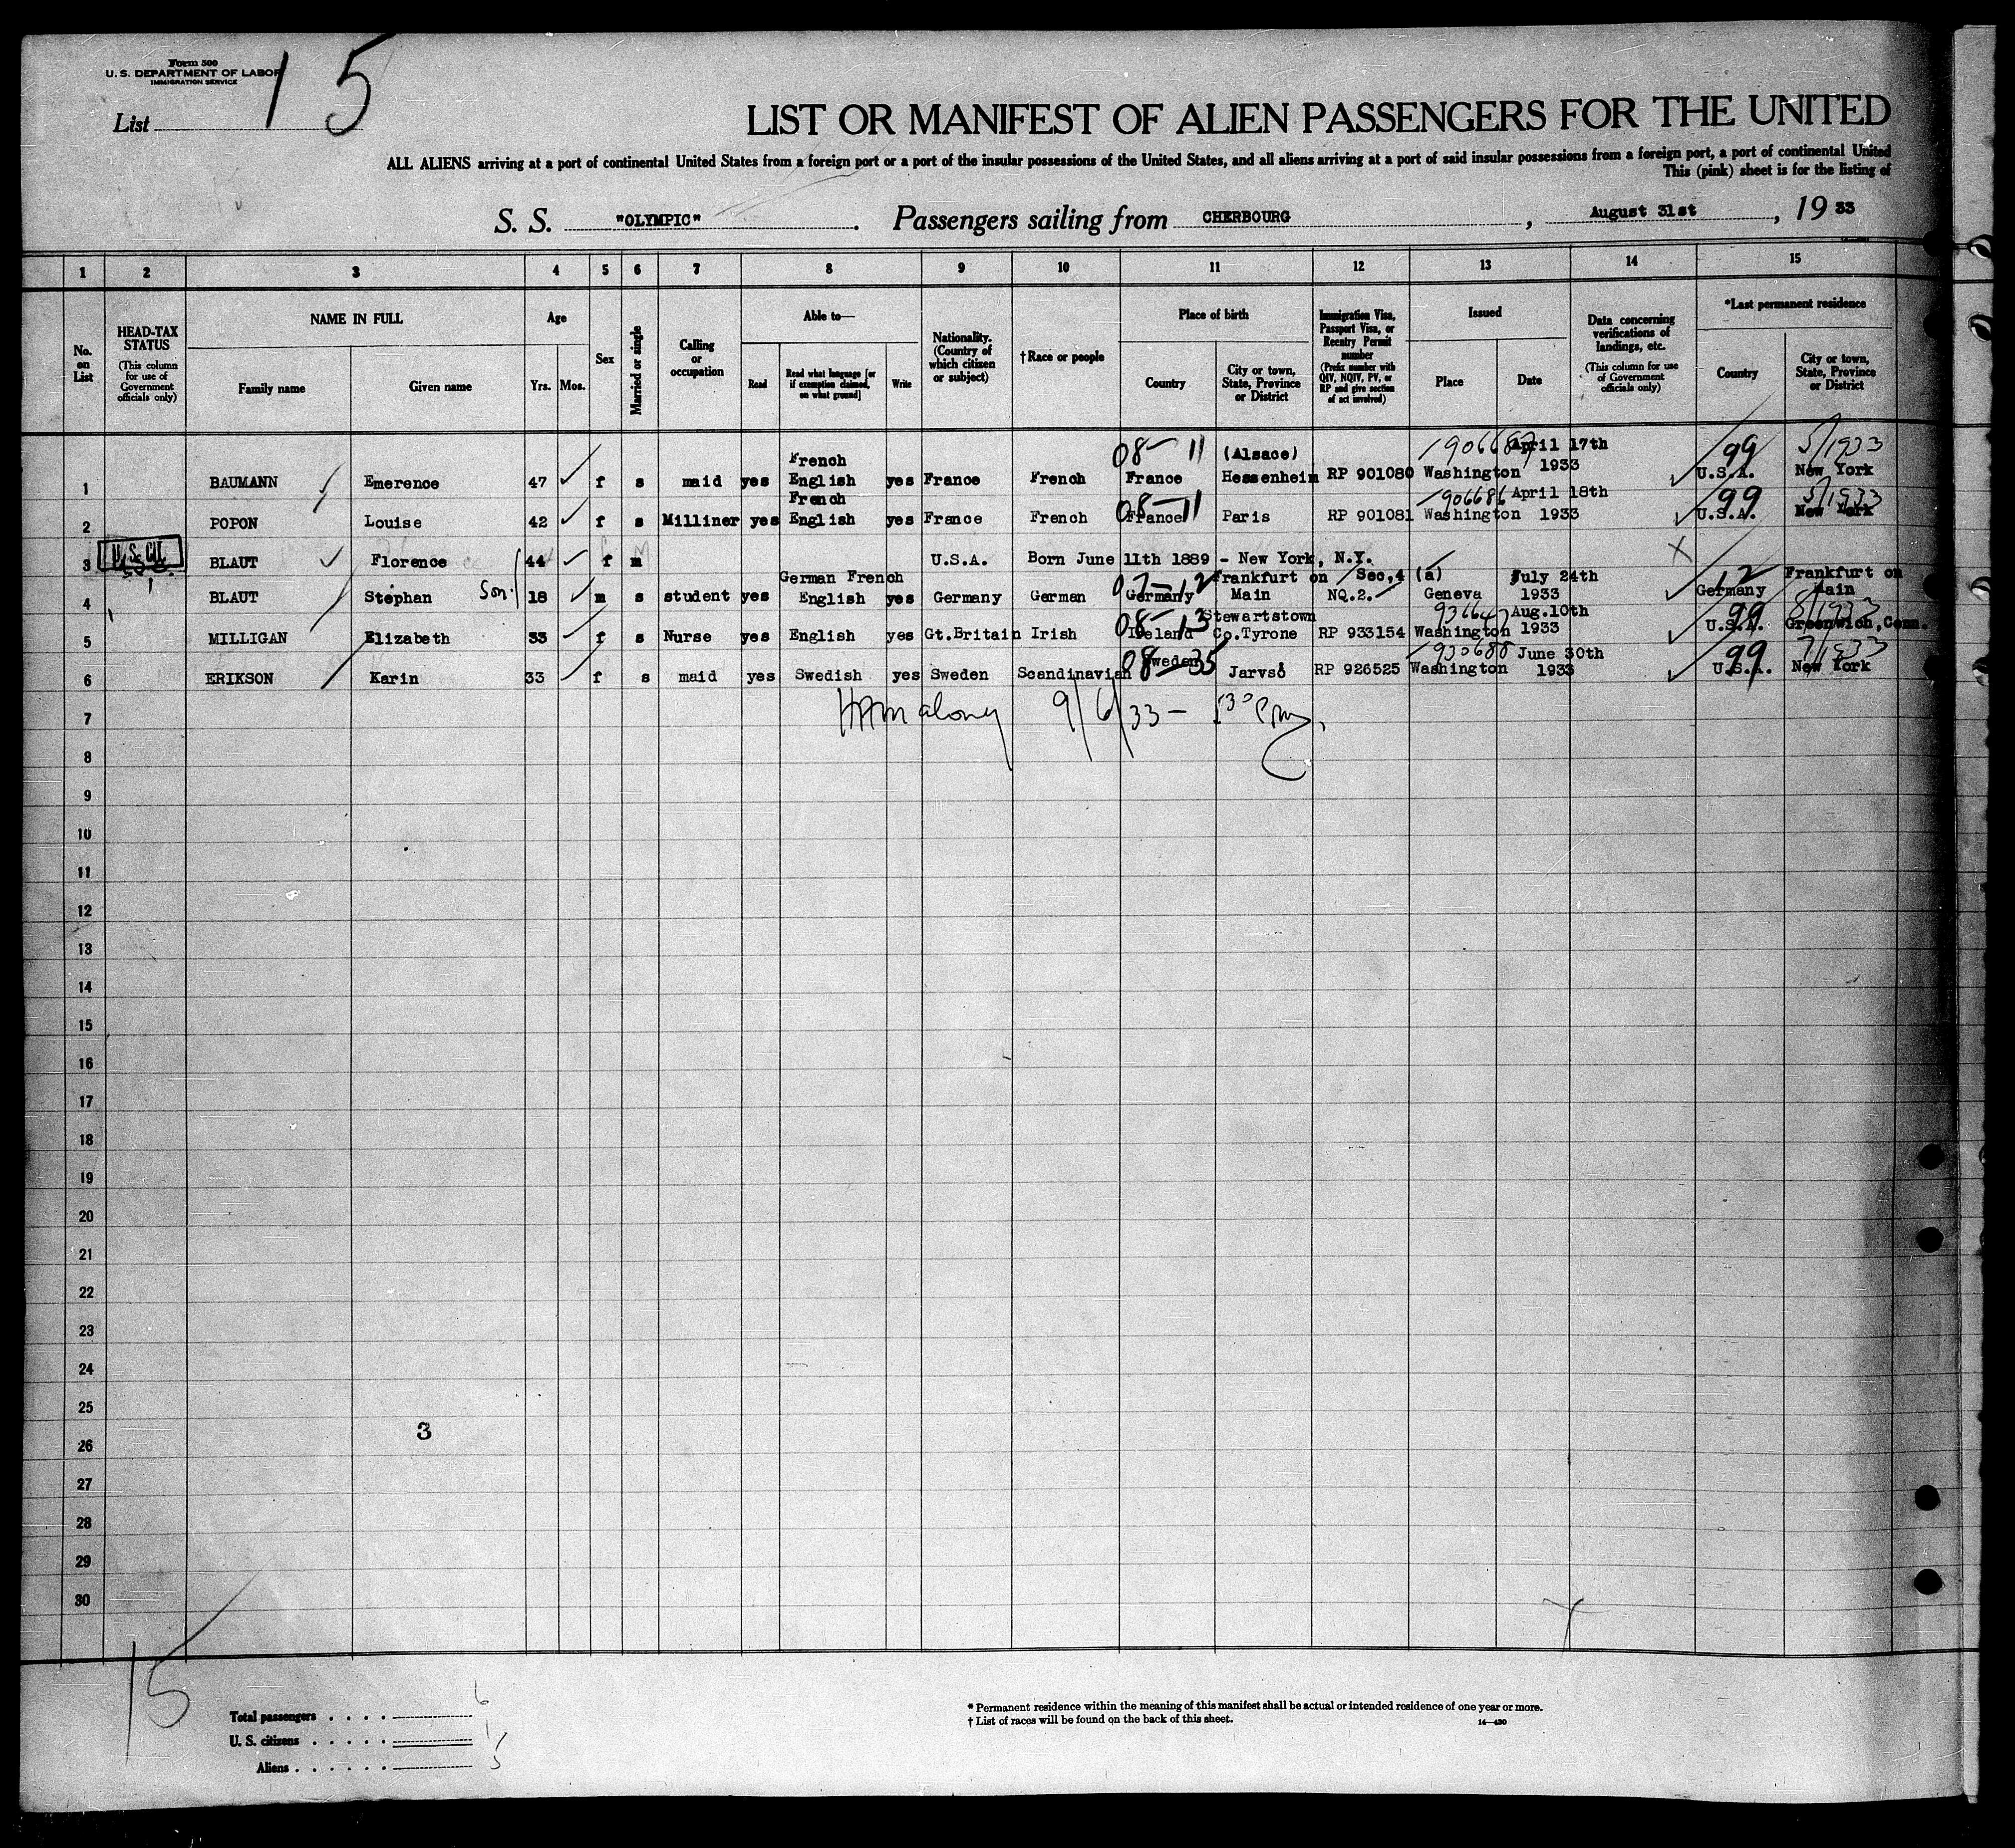 Form 500
U. S. DEPARTMENT OF LABOR
IMMIGRATION SERVICE
List 15
LIST OR MANIFEST OF ALIEN PASSENGERS FOR THE UNITED
ALL ALIENS arriving at a port of continental United States from a foreign port or a port of the insular possessions of the United States, and all aliens arriving at a port of said insular possessions from a foreign port, a port of continental United
This (pink) sheet is for the listing of
S. S. "OLYMPIC". Passengers sailing from CHERBOURG, August 31st, 1933
1 2 3 4 5 6 7 8 9 10 11 12 13 14 15
No. on List
HEAD-TAX STATUS
(This column for use of Government officials only)
NAME IN FULL
Family name Given name
Age
Yrs. Mos.
Sex
Married or single
Calling or occupation
Able to—
Read
Read what language [or if exemption claimed, on what ground]
Write
Nationality. (Country of which citizen or subject)
†Race or people
Place of birth
Country
City or town, State, Province or District
Immigration Visa, Passport Visa, or Reentry Permit number
(Prefix number with QIV, NQIV, PV, or RP and give section of act involved)
Issued
Place Date
Data concerning verifications of landings, etc.
(This column for use of Government officials only)
*Last permanent residence
Country
City or town, State, Province or District
1 BAUMANN Emerence 47 f s maid yes French English yes France French 08-11 France (Alsace) Hessenheim RP 901080 906687 Washington April 17th 1933 99 U.S.A. 5/1933 New York
2 POPON Louise 42 f s Milliner yes French English yes France French 08-11 France Paris RP 901081 906686 Washington April 18th 1933 99 U.S.A. 5/1933 New York
3 U.S. CIT. BLAUT Florence 44 f m U.S.A. Born June 11th 1889 - New York, N.Y. X
4 BLAUT Stephan Son 18 m s student yes German French English yes Germany German 07-12 Germany Frankfurt on Main NQ.2. Sec,4 (a) Geneva July 24th 1933 12 Germany Frankfurt on Main
5 MILLIGAN Elizabeth 33 f s Nurse yes English yes Gt.Britain Irish 08-13 Ireland Stewartstown Co.Tyrone RP 933154 936647 Washington Aug.10th 1933 99 U.S.A. 8/1933 Greenwich,Conn.
6 ERIKSON Karin 33 f s maid yes Swedish yes Sweden Scandinavian 08-35 Sweden Jarvsö RP 926525 930680 Washington June 30th 1933 99 U.S.A. 7/1933 New York
7 Maloney 9/6/33 - 1 30 PM
8
9
10
11
12
13
14
15
16
17
18
19
20
21
22
23
24
25
3
26
27
28
29
30
15
Total passengers . . . . 6
U. S. citizens . . . . . 1
Aliens . . . . . . 5
* Permanent residence within the meaning of this manifest shall be actual or intended residence of one year or more.
† List of races will be found on the back of this sheet. 14—430